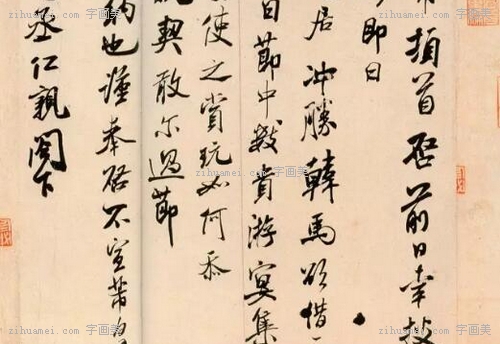 頓首啓前日幸披
即日
居冲勝韓馬欲借
日節中數貴游宴集
使之賞玩如何忝
契敢尔過節
納也謹奉啓不宣芾
丞仁親閣下
字画美
zihuamei.com 字画美
zihuamei.com 字画美
zihuamei.com 字画美
zihuamei.com 字画美